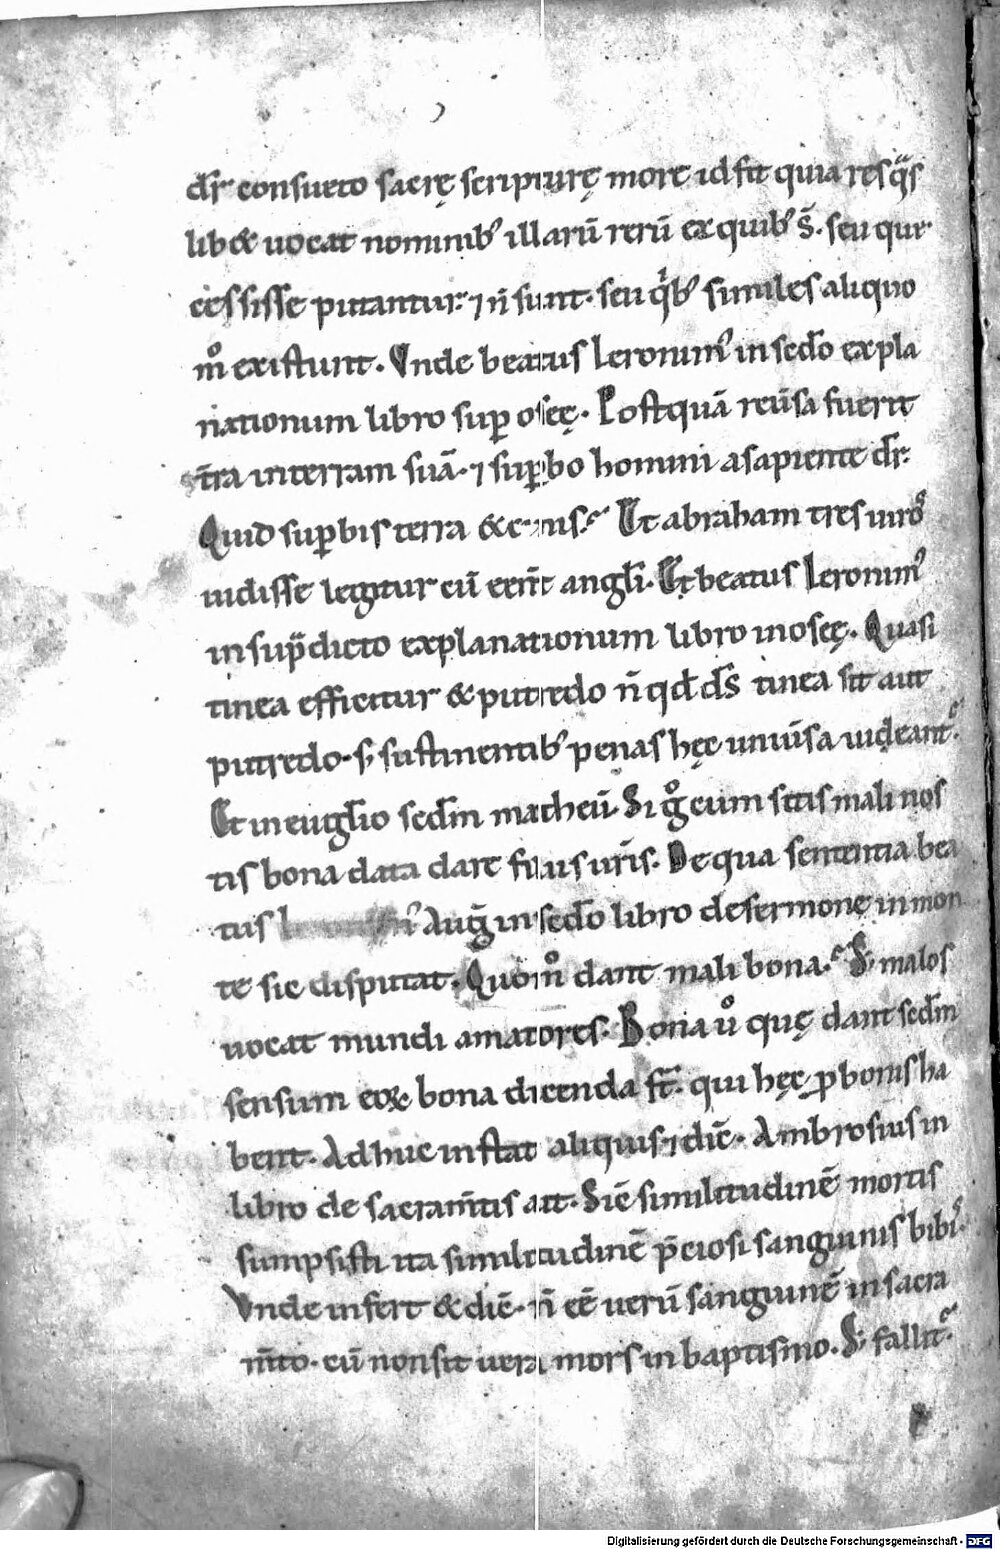 dr̄ consueto sacrę scripturę more id fit quia res q̄s
lib& uocat nominib' illarū rerū ex quib' s̄. seu que
cessisse putantur: ⁊ n̄ sunt. seu qͥb' similes aliquo
m̊ existunt. Vnde beatus Ieronim' in sedo expla
nationum libro sup oseę. Postquā reūsa fuerit
t̄ra in terram suā. ⁊ supbo homini a sapiente dr̄.
Quid supbis terra & cinis? Et abraham tres uiros
uidisse legitur cū eēnt angłi. Et beatus Ieronim'
in sup̄dicto explanationum libro in oseę. Quasi
tinea efficitur & putredo n̄ qd d̄s tinea sit aut
putredo. s; sustinentib' penas hęc uniūsa uideant'.
Et in euglio sedm matheū Si g̊ eum sitis mali nos
tis bona data dare filiis uris. De qua sententia bea
tus Auḡ in sedo libro de sermone in mon
te sic disputat. Quom̊ dant mali bona? S; malos
uocat mundi amatores. Bona ů quę dant sedm
sensum eoꝝ bona dicenda st̄. qui hęc p bonis ha
bent. Adhuc instat aliquis ⁊ dic̄. Ambrosius in
libro de sacram̄tis ait. Sic̄ similitudinē mortis
sumpsisti ita similitudinē p̄ciosi sanguinis bibis.
Vnde infert & dic̄. n̄ eē uerū sanguinē in sacra
m̄to. cū non sit uera mors in baptismo. S; fallit'.
Digitalisierung gefördert durch die Deutsche Forschungsgemeinschaft - DFG